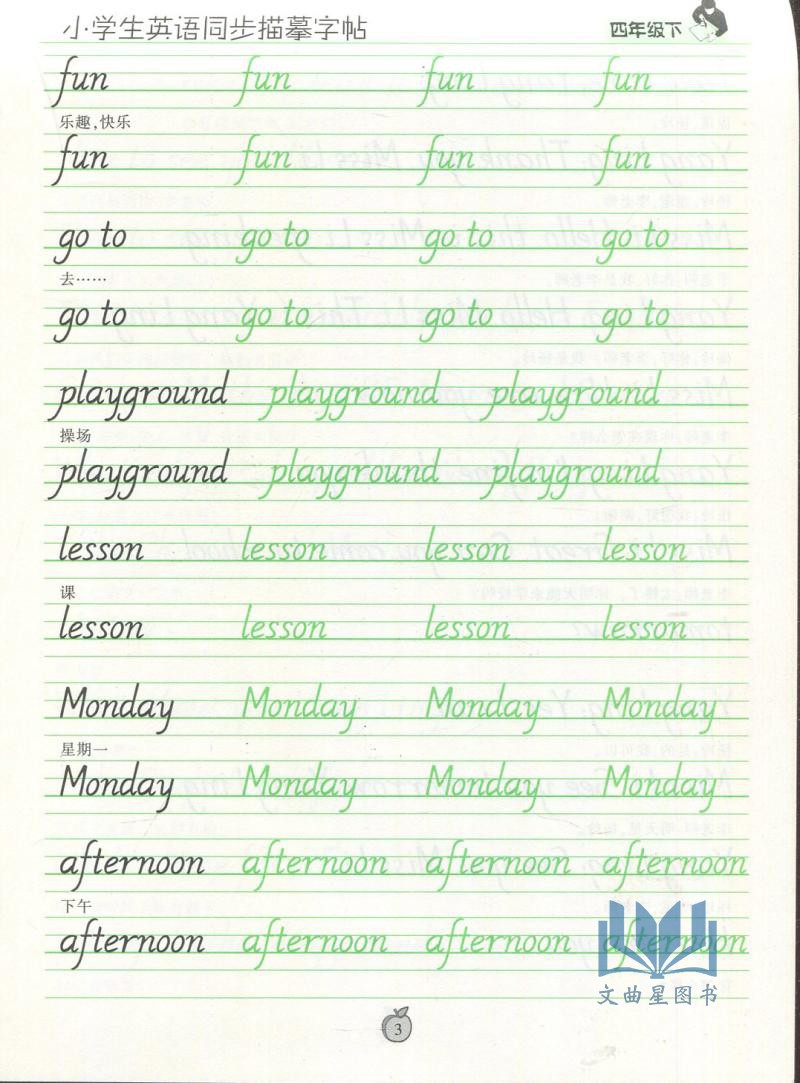 小学生英语同步描摹字帖 四年级下
fun fun fun fun
乐趣,快乐
fun fun fun fun
go to go to go to go to
去……
go to go to go to go to
playground playground playground
操场
playground playground playground
lesson lesson lesson lesson
课
lesson lesson lesson lesson
Monday Monday Monday Monday
星期一
Monday Monday Monday Monday
afternoon afternoon afternoon afternoon
下午
afternoon afternoon afternoon afternoon
文曲星图书
3